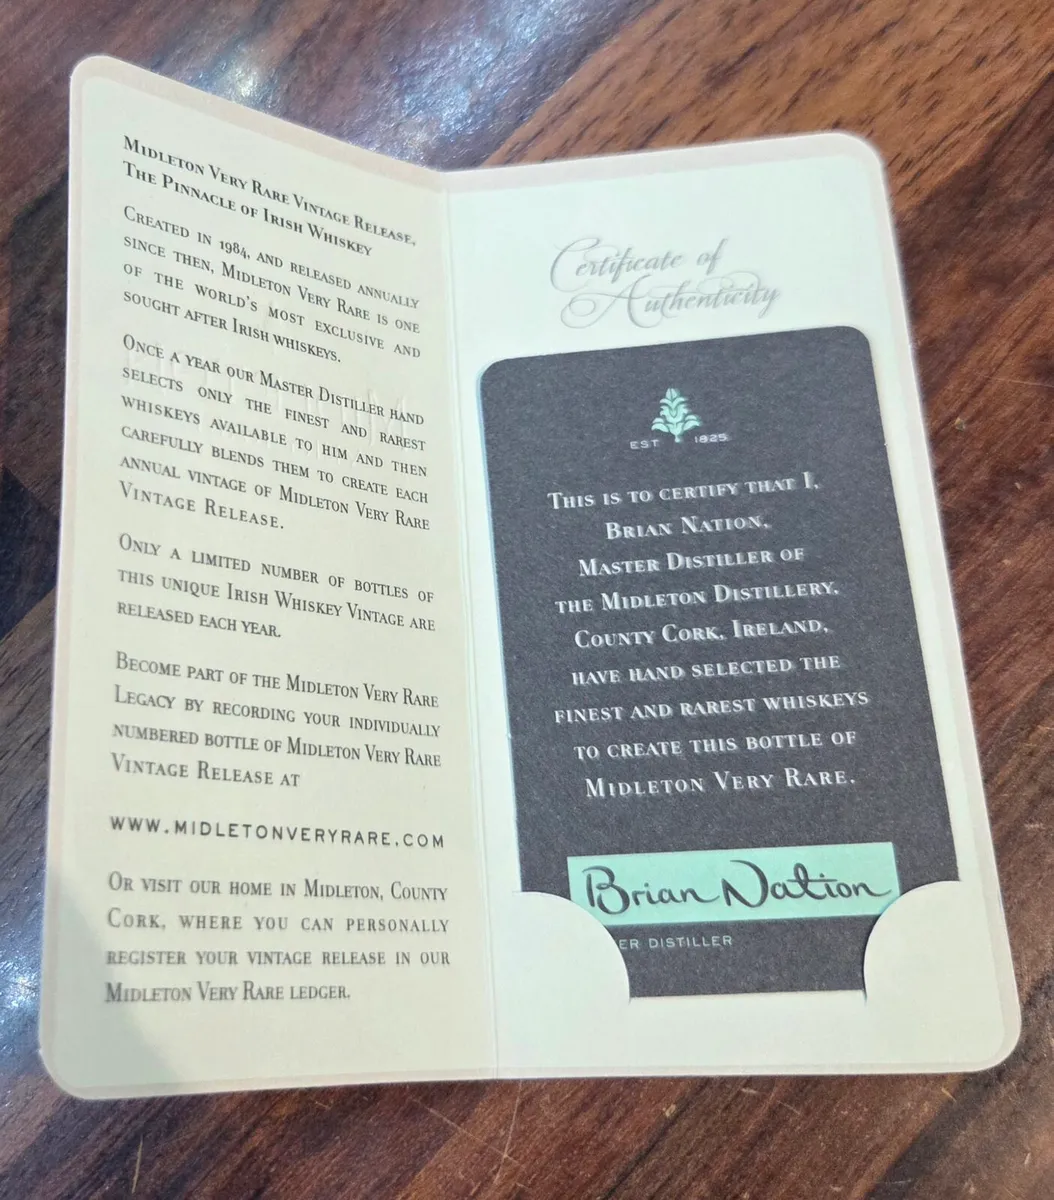 Midleton Very Rare Vintage Release,
The Pinnacle of Irish Whiskey
Created in 1984, and released annually
since then, Midleton Very Rare is one
of the world's most exclusive and
sought after Irish whiskeys.
Once a year our Master Distiller hand
selects only the finest and rarest
whiskeys available to him and then
carefully blends them to create each
annual vintage of Midleton Very Rare
Vintage Release.
Only a limited number of bottles of
this unique Irish Whiskey Vintage are
released each year.
Become part of the Midleton Very Rare
Legacy by recording your individually
numbered bottle of Midleton Very Rare
Vintage Release at
WWW.MIDLETONVERYRARE.COM
Or visit our home in Midleton, County
Cork, where you can personally
register your vintage release in our
Midleton Very Rare ledger.
Certificate of
Authenticity
EST 1825
This is to certify that I,
Brian Nation,
Master Distiller of
the Midleton Distillery,
County Cork, Ireland,
have hand selected the
finest and rarest whiskeys
to create this bottle of
Midleton Very Rare.
Brian Nation
ER DISTILLER